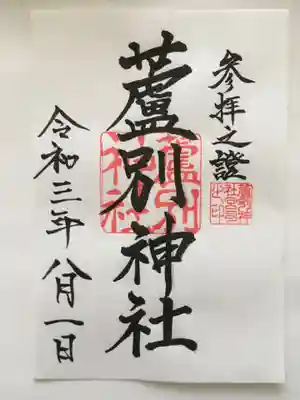 参拝之證
蘆別神社
令和三年八月一日
蘆別
神社